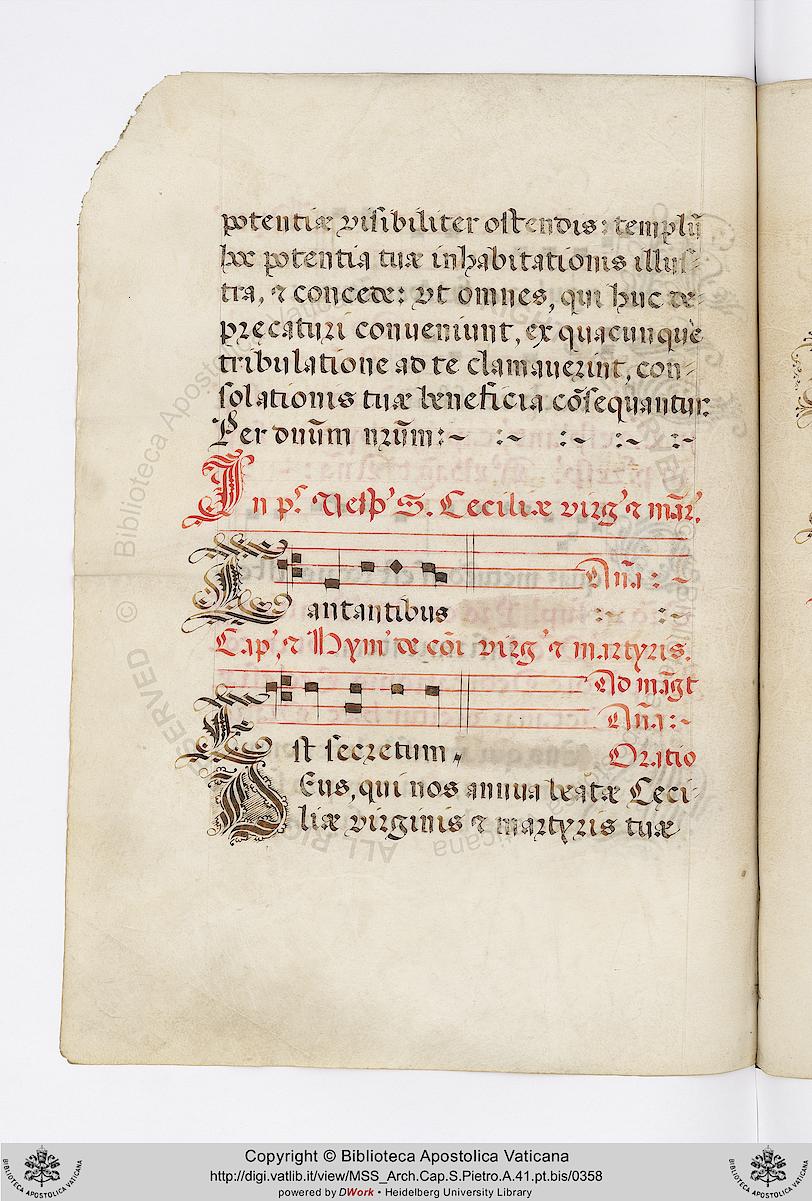 potentiæ visibiliter ostendis: templũ
hoc potentia tuæ inhabitationis illus-
tra, & concede: vt omnes, qui huc de-
precaturi conueniunt, ex quacunque
tribulatione ad te clamauerint, con-
solationis tuæ beneficia cõsequantur.
Per dnũm nrũm:~ :~ :~ :~ :~
In pˢ. Vesp' S. Ceciliæ virg' & mãr'.
Añа: ~
Cantantibus :~ :~
Cap', & Hym' de cõi virg' & martyris.
Ad mãgt
Añа:~
Est secretum,, Oratio
DEus, qui nos annua beatæ Ceci-
liæ virginis & martyris tuæ
© Biblioteca Apostolica Vaticana
ALL RIGHTS RESERVED
Copyright © Biblioteca Apostolica Vaticana
http://digi.vatlib.it/view/MSS_Arch.Cap.S.Pietro.A.41.pt.bis/0358
powered by DWork • Heidelberg University Library
BIBLIOTECA APOSTOLICA VATICANA
BIBLIOTECA APOSTOLICA VATICANA